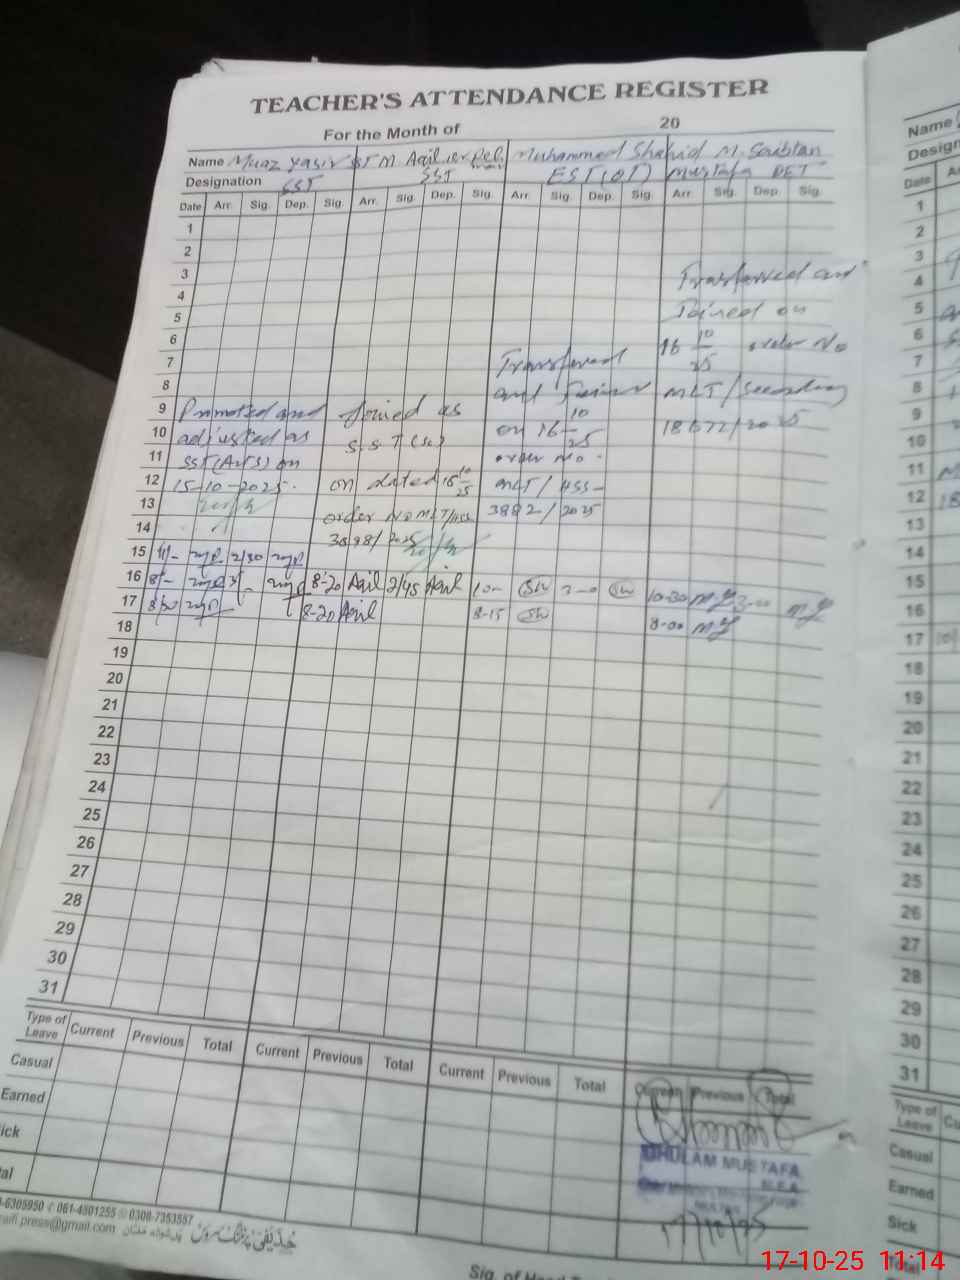 TEACHER'S ATTENDANCE REGISTER
For the Month of 20
Name Muaz Yasir SST M. Aqil Muhammed Shahid M. Soubtan
Designation SST SST EST(OT) Mustafa PET
Date Arr. Sig. Dep. Sig. Arr. Sig. Dep. Sig. Arr. Sig. Dep. Sig. Arr. Sig. Dep. Sig.
1
2
3
4
5
6
7
8
9
10
11
12
13
14
15
16
17
18
19
20
21
22
23
24
25
26
27
28
29
30
31
Promoted and
adjusted as
SST(Arts) on
15-10-2025.
Joined as
S.S.T (Sc)
on dated 16 10/25
order No MLT/HSS
3898/2025
Transferred
and
on 16 10/25
order No.
MLT/HSS-
3882/2025
Transferred and
Joined on
16 10/25 order No
MLT/Secondary
18672/2025
2/30
8-20 Aqil 2/45 Aqil 10- 10-30 3-00
8/30 8-20 Aqil 8-15 8-00
Type of Leave Current Previous Total Current Previous Total Current Previous Total Current Previous Total
Casual
Earned
ick
al
GHULAM MUSTAFA
M.E.A
MULTAN
17/10/25
-6305950 061-4501255 0308-7353557
raifi.press@gmail.com
حذیفی پرنٹنگ سروس
Sig. of Head
Name
Design
Date
1
2
3
4
5
6
7
8
9
10
11
12
13
14
15
16
17
18
19
20
21
22
23
24
25
26
27
28
29
30
31
Type of
Leave
Casual
Earned
Sick
Total
17-10-25 11:14